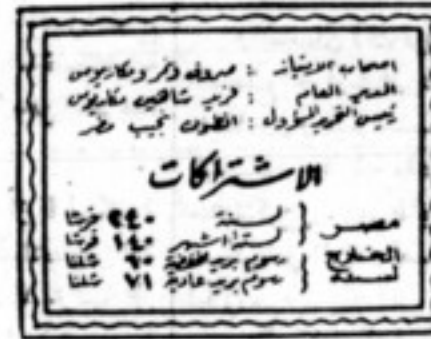 اصحاب الامتياز : صروف ونمر ومكاريوس
المدير العام : فريد شاهين مكاريوس
رئيس التحرير المسؤول : انطون نجيب مطر
الاشتراكات
مصر { لسنة ٢٤٠ غرشا
لستة اشهر ١٤٠ غرشا
الخارج لسنة { رسوم بريد مخفضة ٦٠ شلنا
رسوم بريد عادية ٧١ شلنا